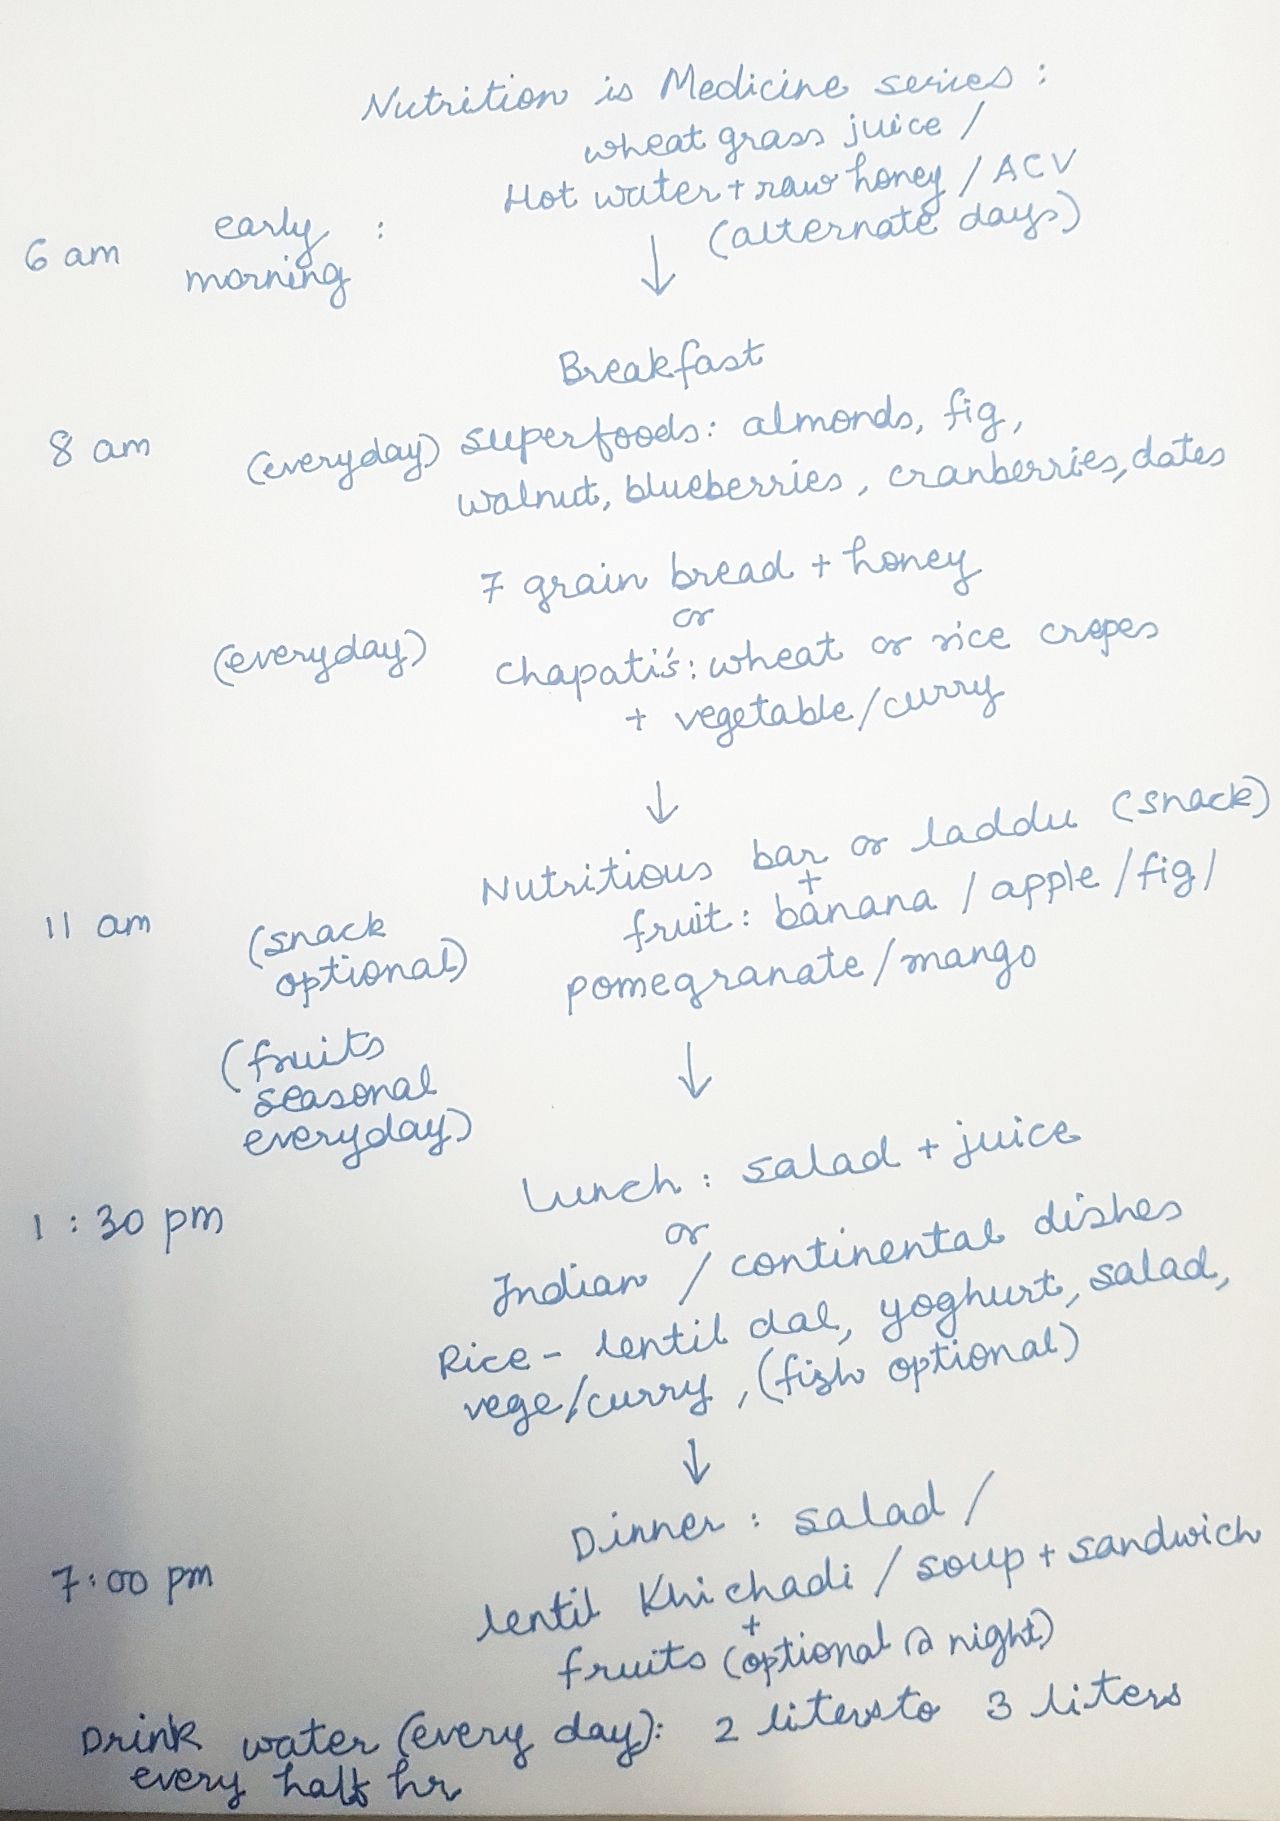 Nutrition is Medicine series:
wheat grass juice /
Hot water + raw honey / ACV
(alternate days)
6 am early :
morning
↓
Breakfast
8 am (everyday) superfoods: almonds, fig,
walnut, blueberries, cranberries, dates
7 grain bread + honey
or
(everyday) chapatis: wheat or rice crepes
+ vegetable/curry
↓
Nutritious bar or laddu (snack)
+
11 am (snack fruit: banana / apple / fig /
optional) pomegranate/mango
(fruits
seasonal
everyday)
↓
Lunch : salad + juice
1:30 pm or
Indian / continental dishes
Rice - lentil dal, yoghurt, salad,
vege/curry, (fish optional)
↓
Dinner : salad /
7:00 pm lentil Khichadi / soup + sandwich
+
fruits (optional @ night)
Drink water (every day): 2 liters to 3 liters
every half hr